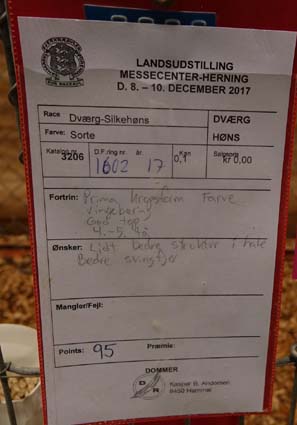 LANDSUDSTILLING
MESSECENTER-HERNING
D. 8. – 10. DECEMBER 2017
Race Dværg-Silkehøns DVÆRG
Farve: Sorte HØNS
Katalog nr. D.F.ring nr. år. Køn Salgspris
3206 1602 17 0,1 kr 0,00
Fortrin: Prima kropsform Farve
vingebæring
God top
4.-5. tå
Ønsker: Lidt bedre struktur i hale
Bedre svingfjer
Mangler/Fejl:
Points: 95 Præmie:
DOMMER
D R
Kasper B. Andersen
8450 Hammel